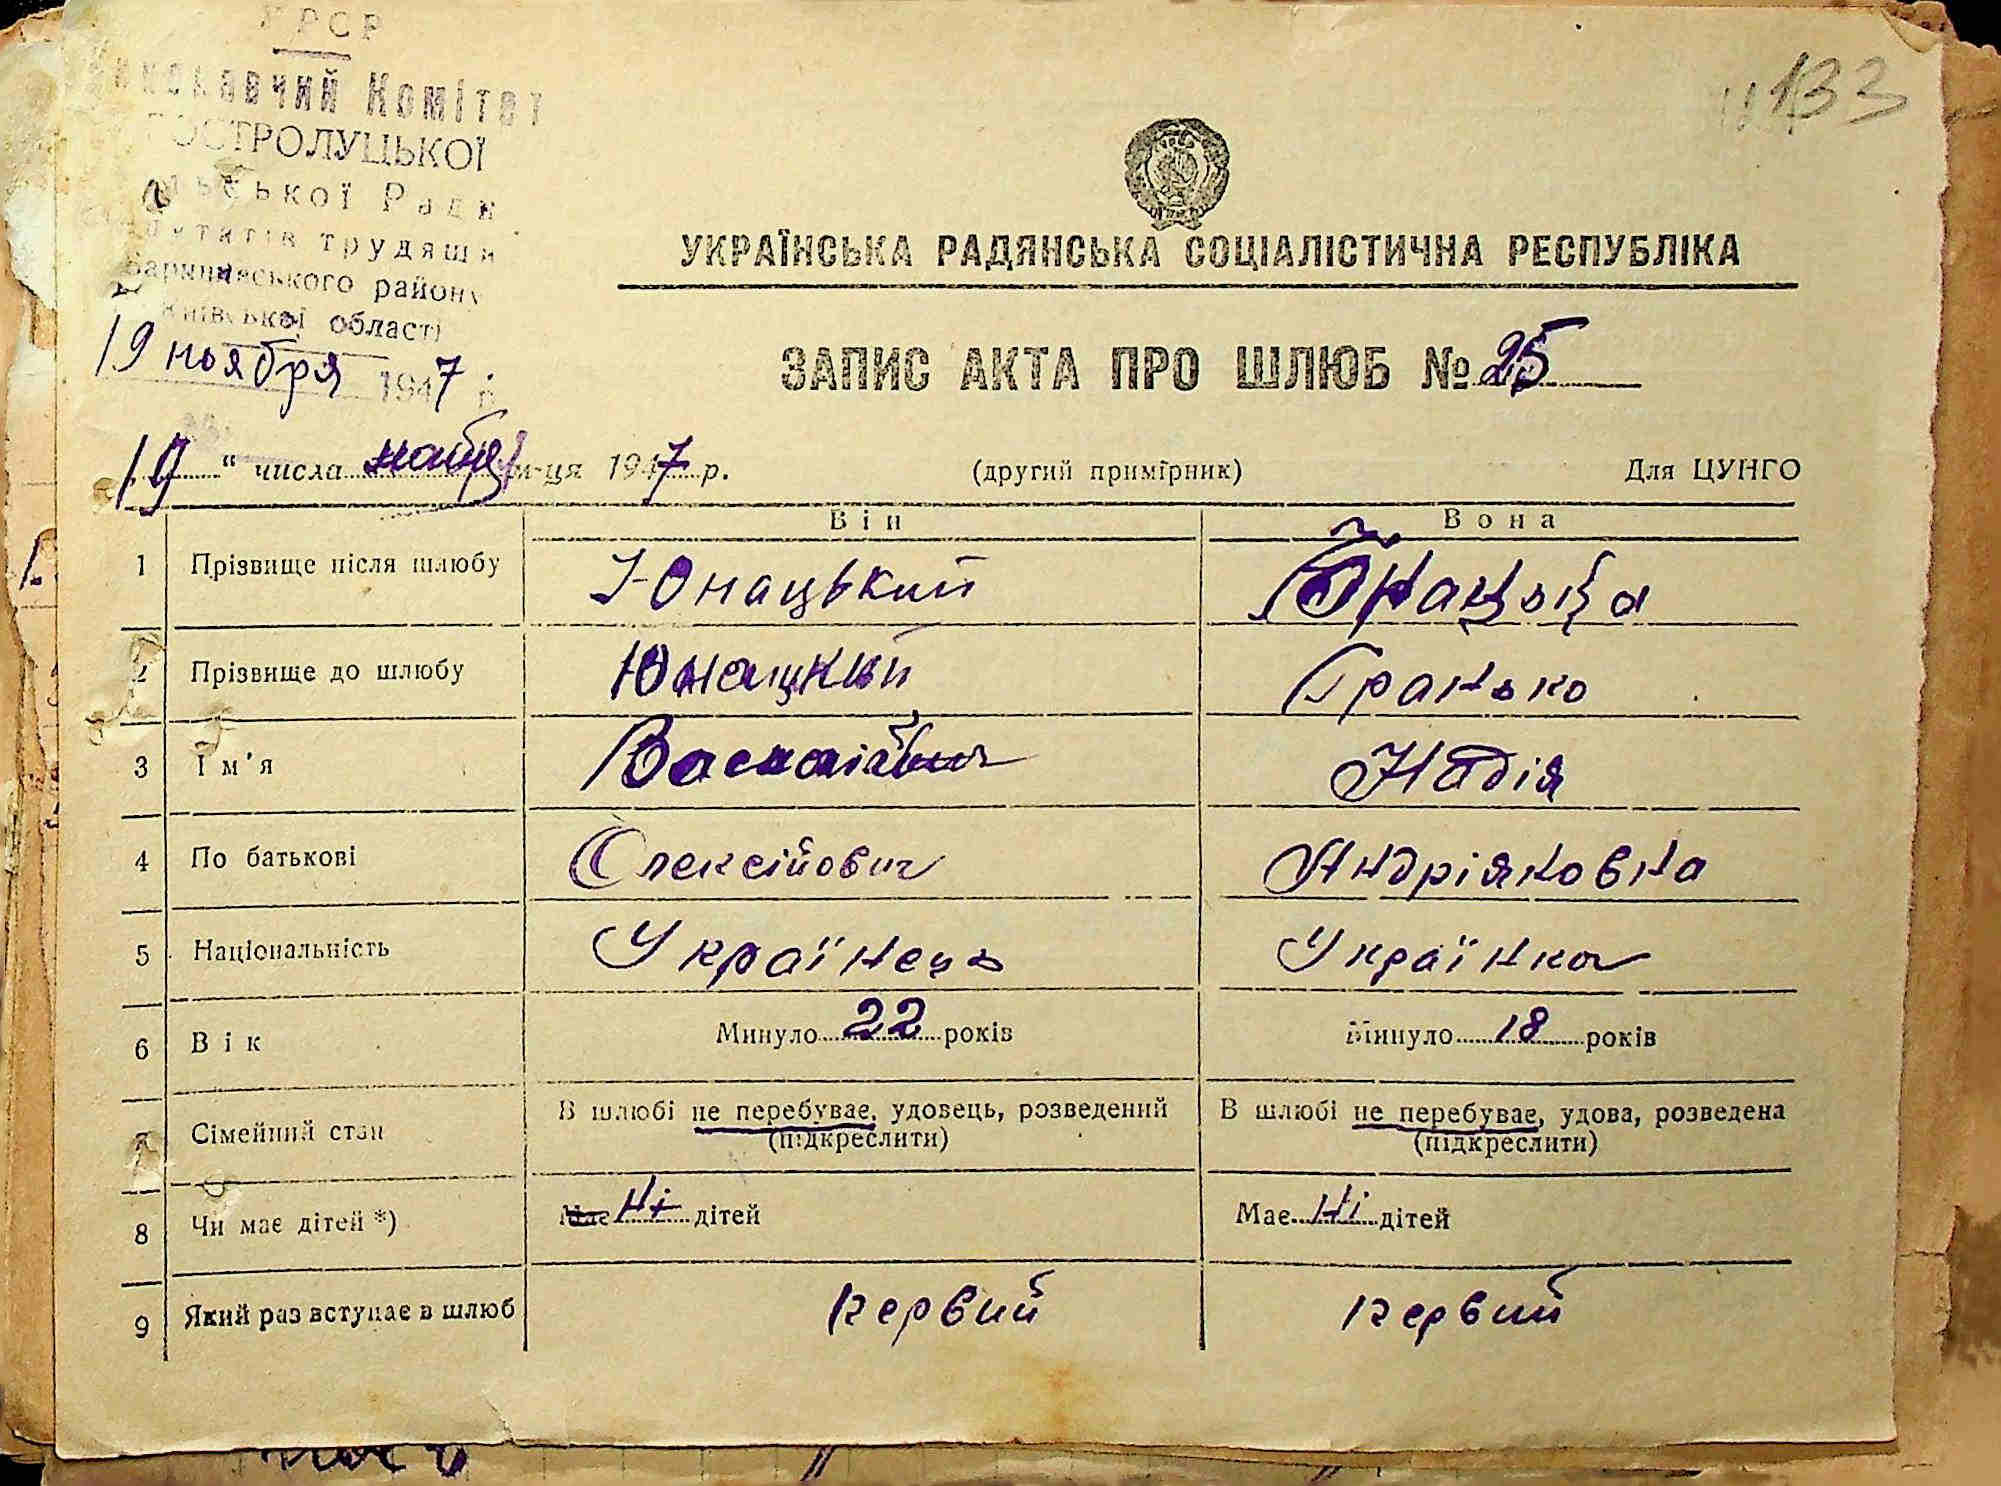 УРСР
Виконавчий Комітет
ГОСТРОЛУЦЬКОЇ
сільської Ради
депутатів трудящи
Баришівського району
Київської області
19 ноября 1947 р.
133
УКРАЇНСЬКА РАДЯНСЬКА СОЦІАЛІСТИЧНА РЕСПУБЛІКА
ЗАПИС АКТА ПРО ШЛЮБ № 25
19 " числа ноября м-ця 1947 р. (другий примірник) Для ЦУНГО
Він Вона
1 Прізвище після шлюбу Юнацький Юнацька
2 Прізвище до шлюбу Юнацкий Гранько
3 Ім'я Надія
4 По батькові Олексійович Андріяновна
5 Національність Українець Українка
6 Вік Минуло 22 років Минуло 18 років
7 Сімейний стан В шлюбі не перебуває, удовець, розведений В шлюбі не перебуває, удова, розведена
(підкреслити) (підкреслити)
8 Чи має дітей *) Має Ні дітей Має Ні дітей
9 Який раз вступає в шлюб первий первий